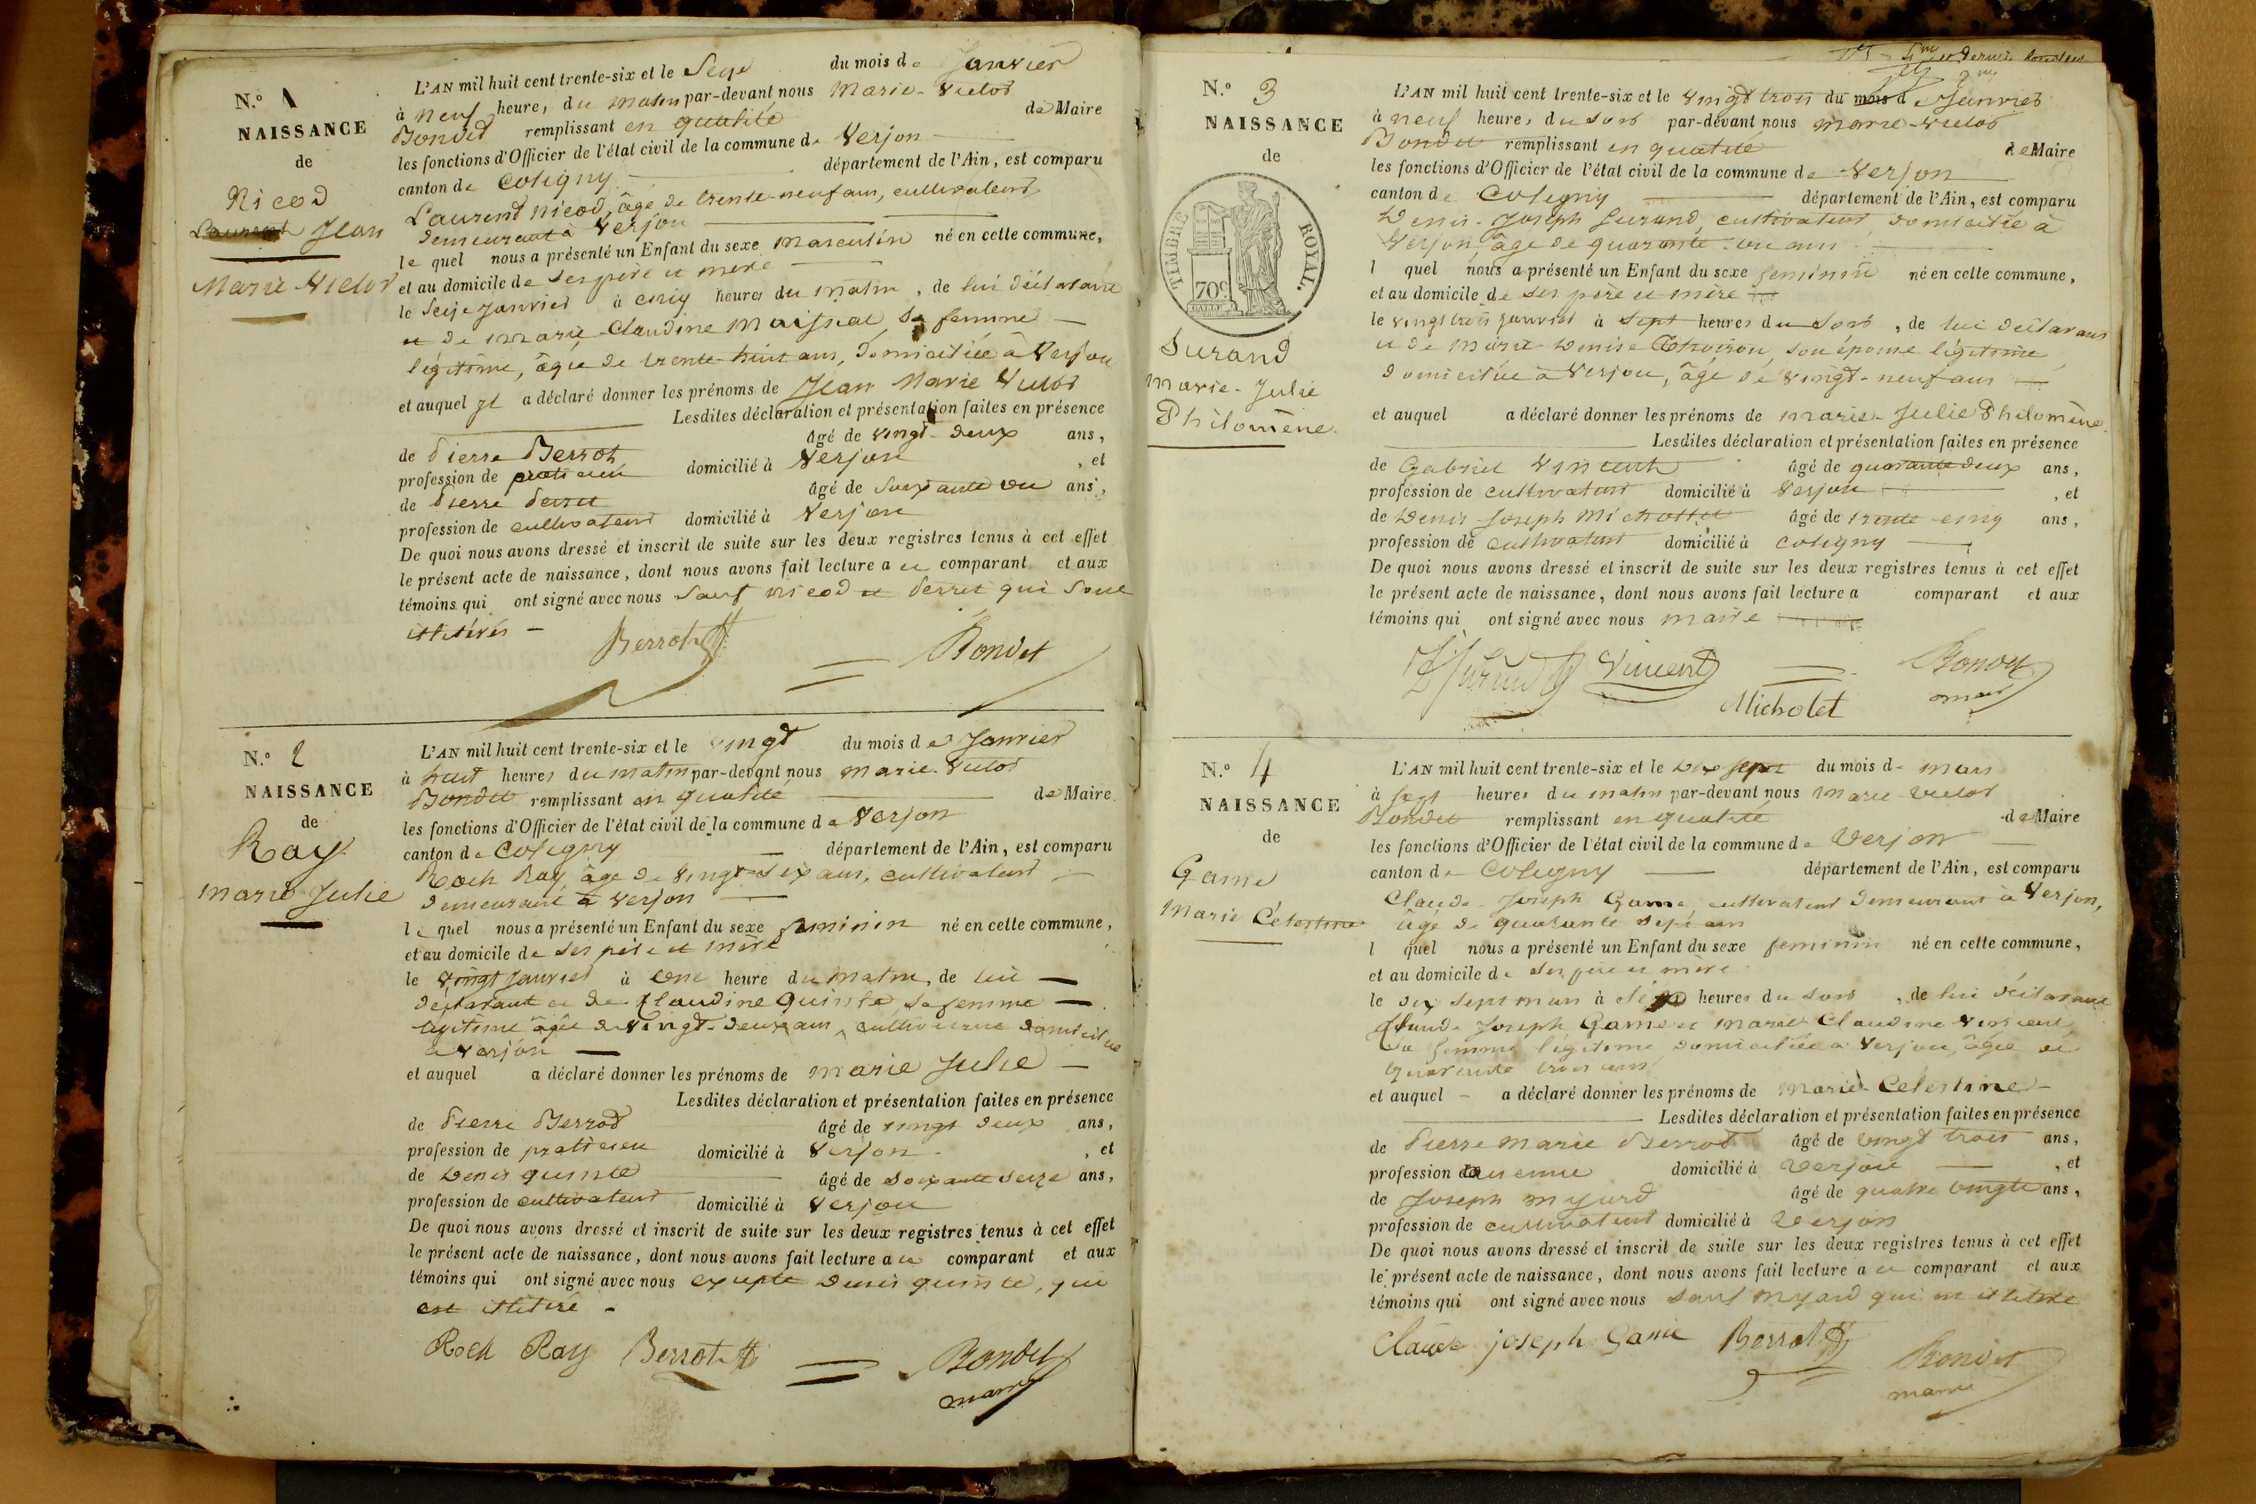 N.º 1
NAISSANCE
de
Nicod
Laurent Jean
Marie-Victor
L'AN mil huit cent trente-six et le Seize du mois de Janvier
à neuf heure, du matin par-devant nous Marie-Victor
Bondet remplissant en qualité de Maire
les fonctions d'Officier de l'état civil de la commune de Verjon
canton de Coligny département de l'Ain, est comparu
Laurend Nicod, âgé de trente-neuf ans, cultivateur
demeurant à Verjon
le quel nous a présenté un Enfant du sexe masculin né en cette commune,
et au domicile de ses père et mère
le Seize Janvier à cinq heures du matin, de lui déclarant
et de marie-Claudine sa femme
légitime, âgée de trente-huit ans, domiciliée à Verjon
et auquel il a déclaré donner les prénoms de Jean Marie Victor
Lesdites déclaration et présentation faites en présence
de Pierre Berrot âgé de vingt-deux ans,
profession de praticien domicilié à Verjon, et
de Pierre Perret âgé de soixante un ans,
profession de cultivateur domicilié à Verjon
De quoi nous avons dressé et inscrit de suite sur les deux registres tenus à cet effet
le présent acte de naissance, dont nous avons fait lecture au comparant et aux
témoins qui ont signé avec nous sauf nicod et perret qui sont
illitérés
Berrot Bondet
N.º 2
NAISSANCE
de
Ray
Marie-Julie
L'AN mil huit cent trente-six et le vingt du mois de Janvier
à huit heures du matin par-devant nous marie-Victor
Bondet remplissant en qualité de Maire
les fonctions d'Officier de l'état civil de la commune de Verjon
canton de Coligny département de l'Ain, est comparu
Roch Ray âgé de vingt-six ans, cultivateur
demeurant à Verjon
le quel nous a présenté un Enfant du sexe feminin né en cette commune,
et au domicile de ses père et mère
le vingt Janvier à une heure du matin, de lui
déclarant et de Claudine Quinte sa femme
légitime âgée de vingt-deux ans, domicilié
à Verjon
et auquel a déclaré donner les prénoms de marie Julie
Lesdites déclaration et présentation faites en présence
de Pierre Berrod âgé de vingt deux ans,
profession de praticien domicilié à Verjon, et
de Denis quinte âgé de soixante seize ans,
profession de cultivateur domicilié à Verjon
De quoi nous avons dressé et inscrit de suite sur les deux registres tenus à cet effet
le présent acte de naissance, dont nous avons fait lecture au comparant et aux
témoins qui ont signé avec nous excepté denis quinte, qui
est illitéré
Roch Ray Berrot Bondet
maire
N.º 3
NAISSANCE
de
TIMBRE ROYAL.
70c
Durand
Marie-Julie
Philomène
L'AN mil huit cent trente-six et le vingt trois du mois de Janvier
à neuf heures du soir par-devant nous marie-Victor
Bondet remplissant en qualité de Maire
les fonctions d'Officier de l'état civil de la commune de Verjon
canton de Coligny département de l'Ain, est comparu
Denis-Joseph Durand, cultivateur domicilié à
Verjon âgé de quarante-un ans
l quel nous a présenté un Enfant du sexe feminin né en cette commune,
et au domicile de ses père et mère
le vingt trois Janvier à sept heures du soir, de lui déclarant
et de Marie-Denise son épouse légitime
domiciliée à Verjon, âgé de vingt-neuf ans
et auquel a déclaré donner les prénoms de marie-Julie Philomène.
Lesdites déclaration et présentation faites en présence
de Gabriel Vincent âgé de quarante deux ans,
profession de cultivateur domicilié à Verjon, et
de Denis-Joseph Michollet âgé de trente-cinq ans,
profession de cultivateur domicilié à Coligny
De quoi nous avons dressé et inscrit de suite sur les deux registres tenus à cet effet
le présent acte de naissance, dont nous avons fait lecture a comparant et aux
témoins qui ont signé avec nous maire
Durand Vincent Bondet
Micholet maire
N.º 4
NAISSANCE
de
Game
Marie Célestine
L'AN mil huit cent trente-six et le dix sept du mois d mars
à sept heures du matin par-devant nous Marie Victor
Bondet remplissant en qualité de Maire
les fonctions d'Officier de l'état civil de la commune de Verjon
canton de Coligny département de l'Ain, est comparu
Claude-Joseph Game, cultivateur demeurant à Verjon,
âgé de quarante sept ans
l quel nous a présenté un Enfant du sexe feminin né en cette commune,
et au domicile de ses père et mère
le dix sept mars à heures du soir, de lui déclarant
Claude Joseph Game et marie Claudine Vincent
sa femme légitime domiciliée à Verjon, âgée de
quarante trois ans
et auquel a déclaré donner les prénoms de Marie-Celestine
Lesdites déclaration et présentation faites en présence
de Pierre Marie Berrot âgé de vingt trois ans,
profession domicilié à Verjon, et
de Joseph Myard âgé de quatre vingts ans,
profession de cultivateur domicilié à Verjon
De quoi nous avons dressé et inscrit de suite sur les deux registres tenus à cet effet
le présent acte de naissance, dont nous avons fait lecture au comparant et aux
témoins qui ont signé avec nous sauf Myard qui est illitéré
Claude joseph Game Berrot Bondet
maire